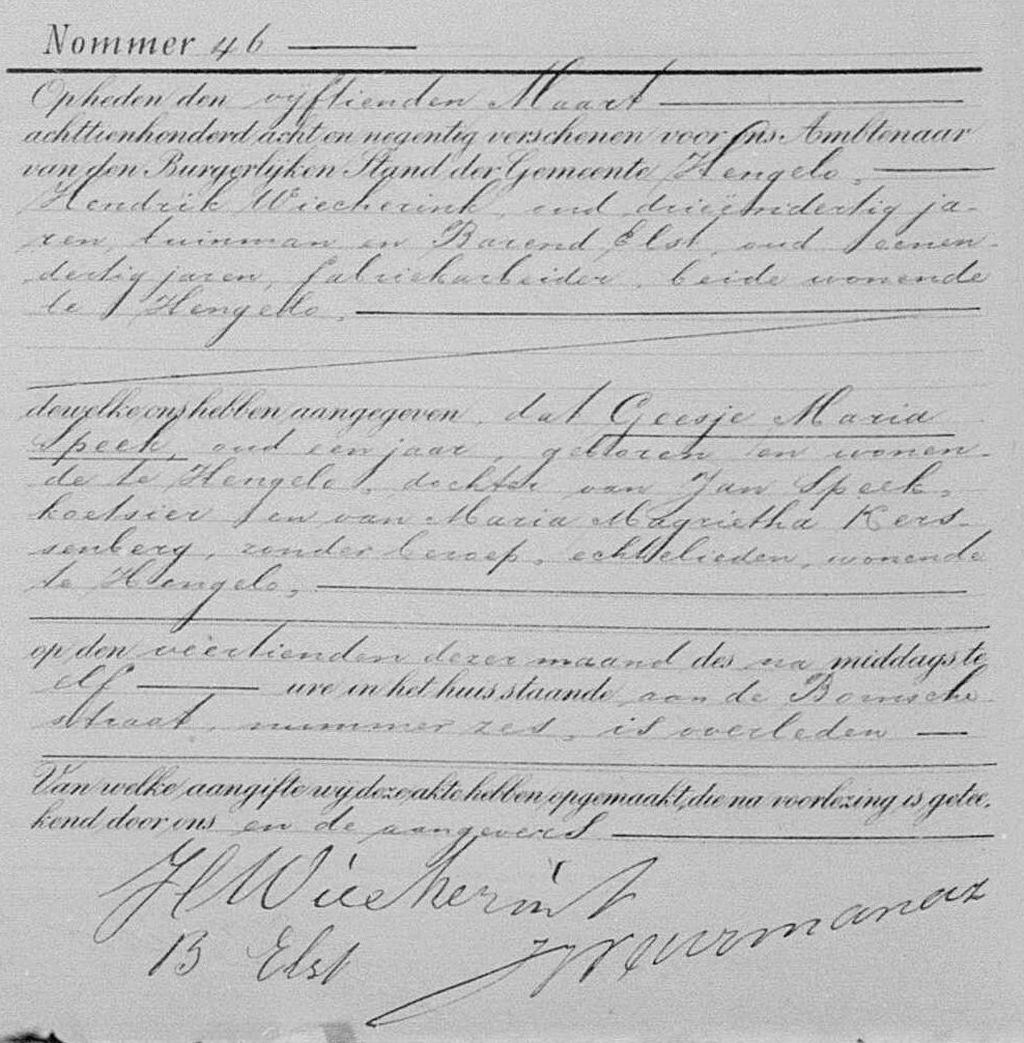 Nommer 46
Op heden den vyftienden Maart
achttienhonderd acht en negentig verschenen voor Ons Ambtenaar
van den Burgerlyken Stand der Gemeente Hengelo,
Hendrik Wiecherink, oud drieëndertig ja-
ren, tuinman en Barend Elst, oud eenen-
dertig jaren, fabriekarbeider, beide wonende
te Hengelo,
dewelke ons hebben aangegeven, dat Geesje Maria
Speek, oud een jaar, geboren en wonen-
de te Hengelo, dochter van Jan Speek,
koetsier en van Maria Magrietha Kers-
senberg, zonder beroep, echtelieden, wonende
te Hengelo,
op den veertienden dezer maand des na middags te
elf ure in het huis staande aan de Bornsche
straat, nummer zes, is overleden
Van welke aangifte wy deze akte hebben opgemaakt, die na voorlezing is getee-
kend door ons en de aangevers
H Wiecherink
B Elst